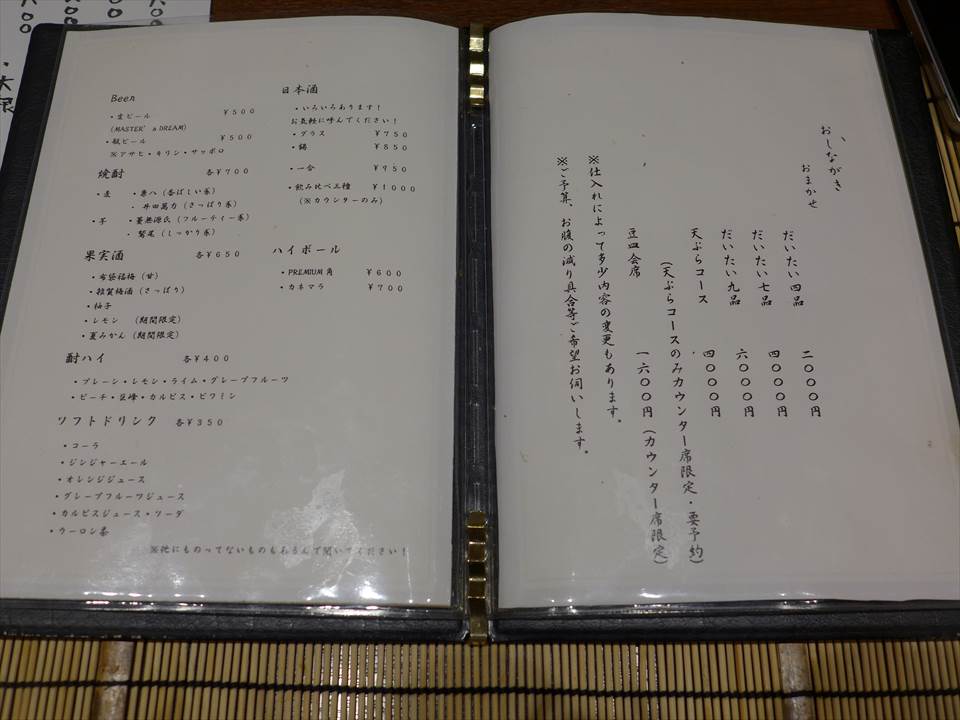 Beer
・生ビール ¥500
(MASTER'S DREAM)
・瓶ビール ¥500
※アサヒ・キリン・サッポロ
焼酎 各¥700
・麦 ・兼八(香ばしい系)
・井田萬力(さっぱり系)
・芋 ・蔓無源氏(フルーティー系)
・鷲尾(しっかり系)
果実酒 各¥650
・布袋福梅(甘)
・雑賀梅酒(さっぱり)
・柚子
・レモン (期間限定)
・夏みかん(期間限定)
酎ハイ 各¥400
・プレーン・レモン・ライム・グレープフルーツ
・ピーチ・巨峰・カルピス・ビタミン
ソフトドリンク 各¥350
・コーラ
・ジンジャーエール
・オレンジジュース
・グレープフルーツジュース
・カルピスジュース・ソーダ
・ウーロン茶
日本酒
・いろいろあります!
お気軽に呼んでください!
・グラス ¥750
・錫 ¥850
・一合 ¥950
・飲み比べ三種 ¥1000
(※カウンターのみ)
ハイボール
・PREMIUM角 ¥600
・カネマラ ¥700
※他にものってないものもあるんで聞いてください!
おしながき
おまかせ
だいたい四品 二〇〇〇円
だいたい七品 四〇〇〇円
だいたい九品 六〇〇〇円
天ぷらコース 四〇〇〇円
(天ぷらコースのみカウンター席限定・要予約)
豆皿会席 一六〇〇円(カウンター席限定)
※仕入れによって多少内容の変更もあります。
※ご予算、お腹の減り具合等ご希望お伺いします。